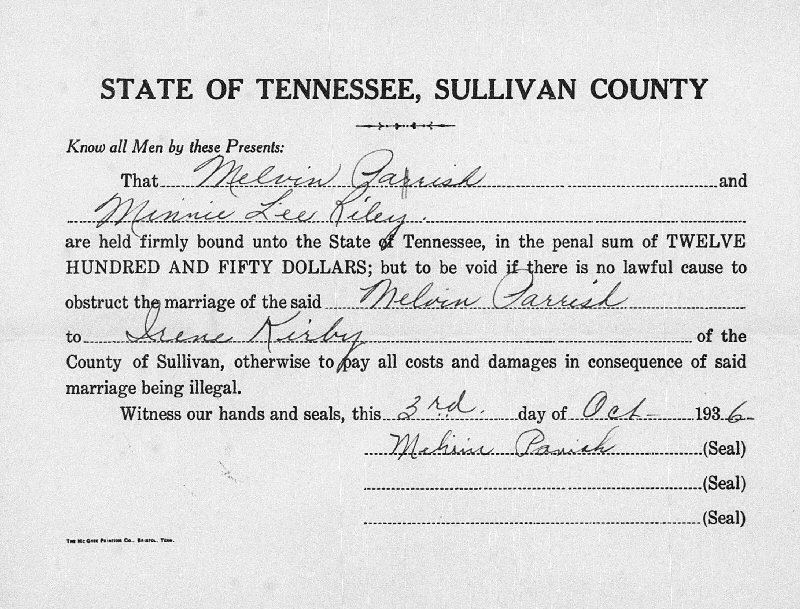 STATE OF TENNESSEE, SULLIVAN COUNTY
Know all Men by these Presents:
That Melvin Parrish and
Minnie Lee Riley.
are held firmly bound unto the State of Tennessee, in the penal sum of TWELVE
HUNDRED AND FIFTY DOLLARS; but to be void if there is no lawful cause to
obstruct the marriage of the said Melvin Parrish
to Irene Kirby of the
County of Sullivan, otherwise to pay all costs and damages in consequence of said
marriage being illegal.
Witness our hands and seals, this 3rd. day of Oct 1936
Melvin Parish (Seal)
(Seal)
(Seal)
THE MC GEE PRINTING CO., BRISTOL, TENN.